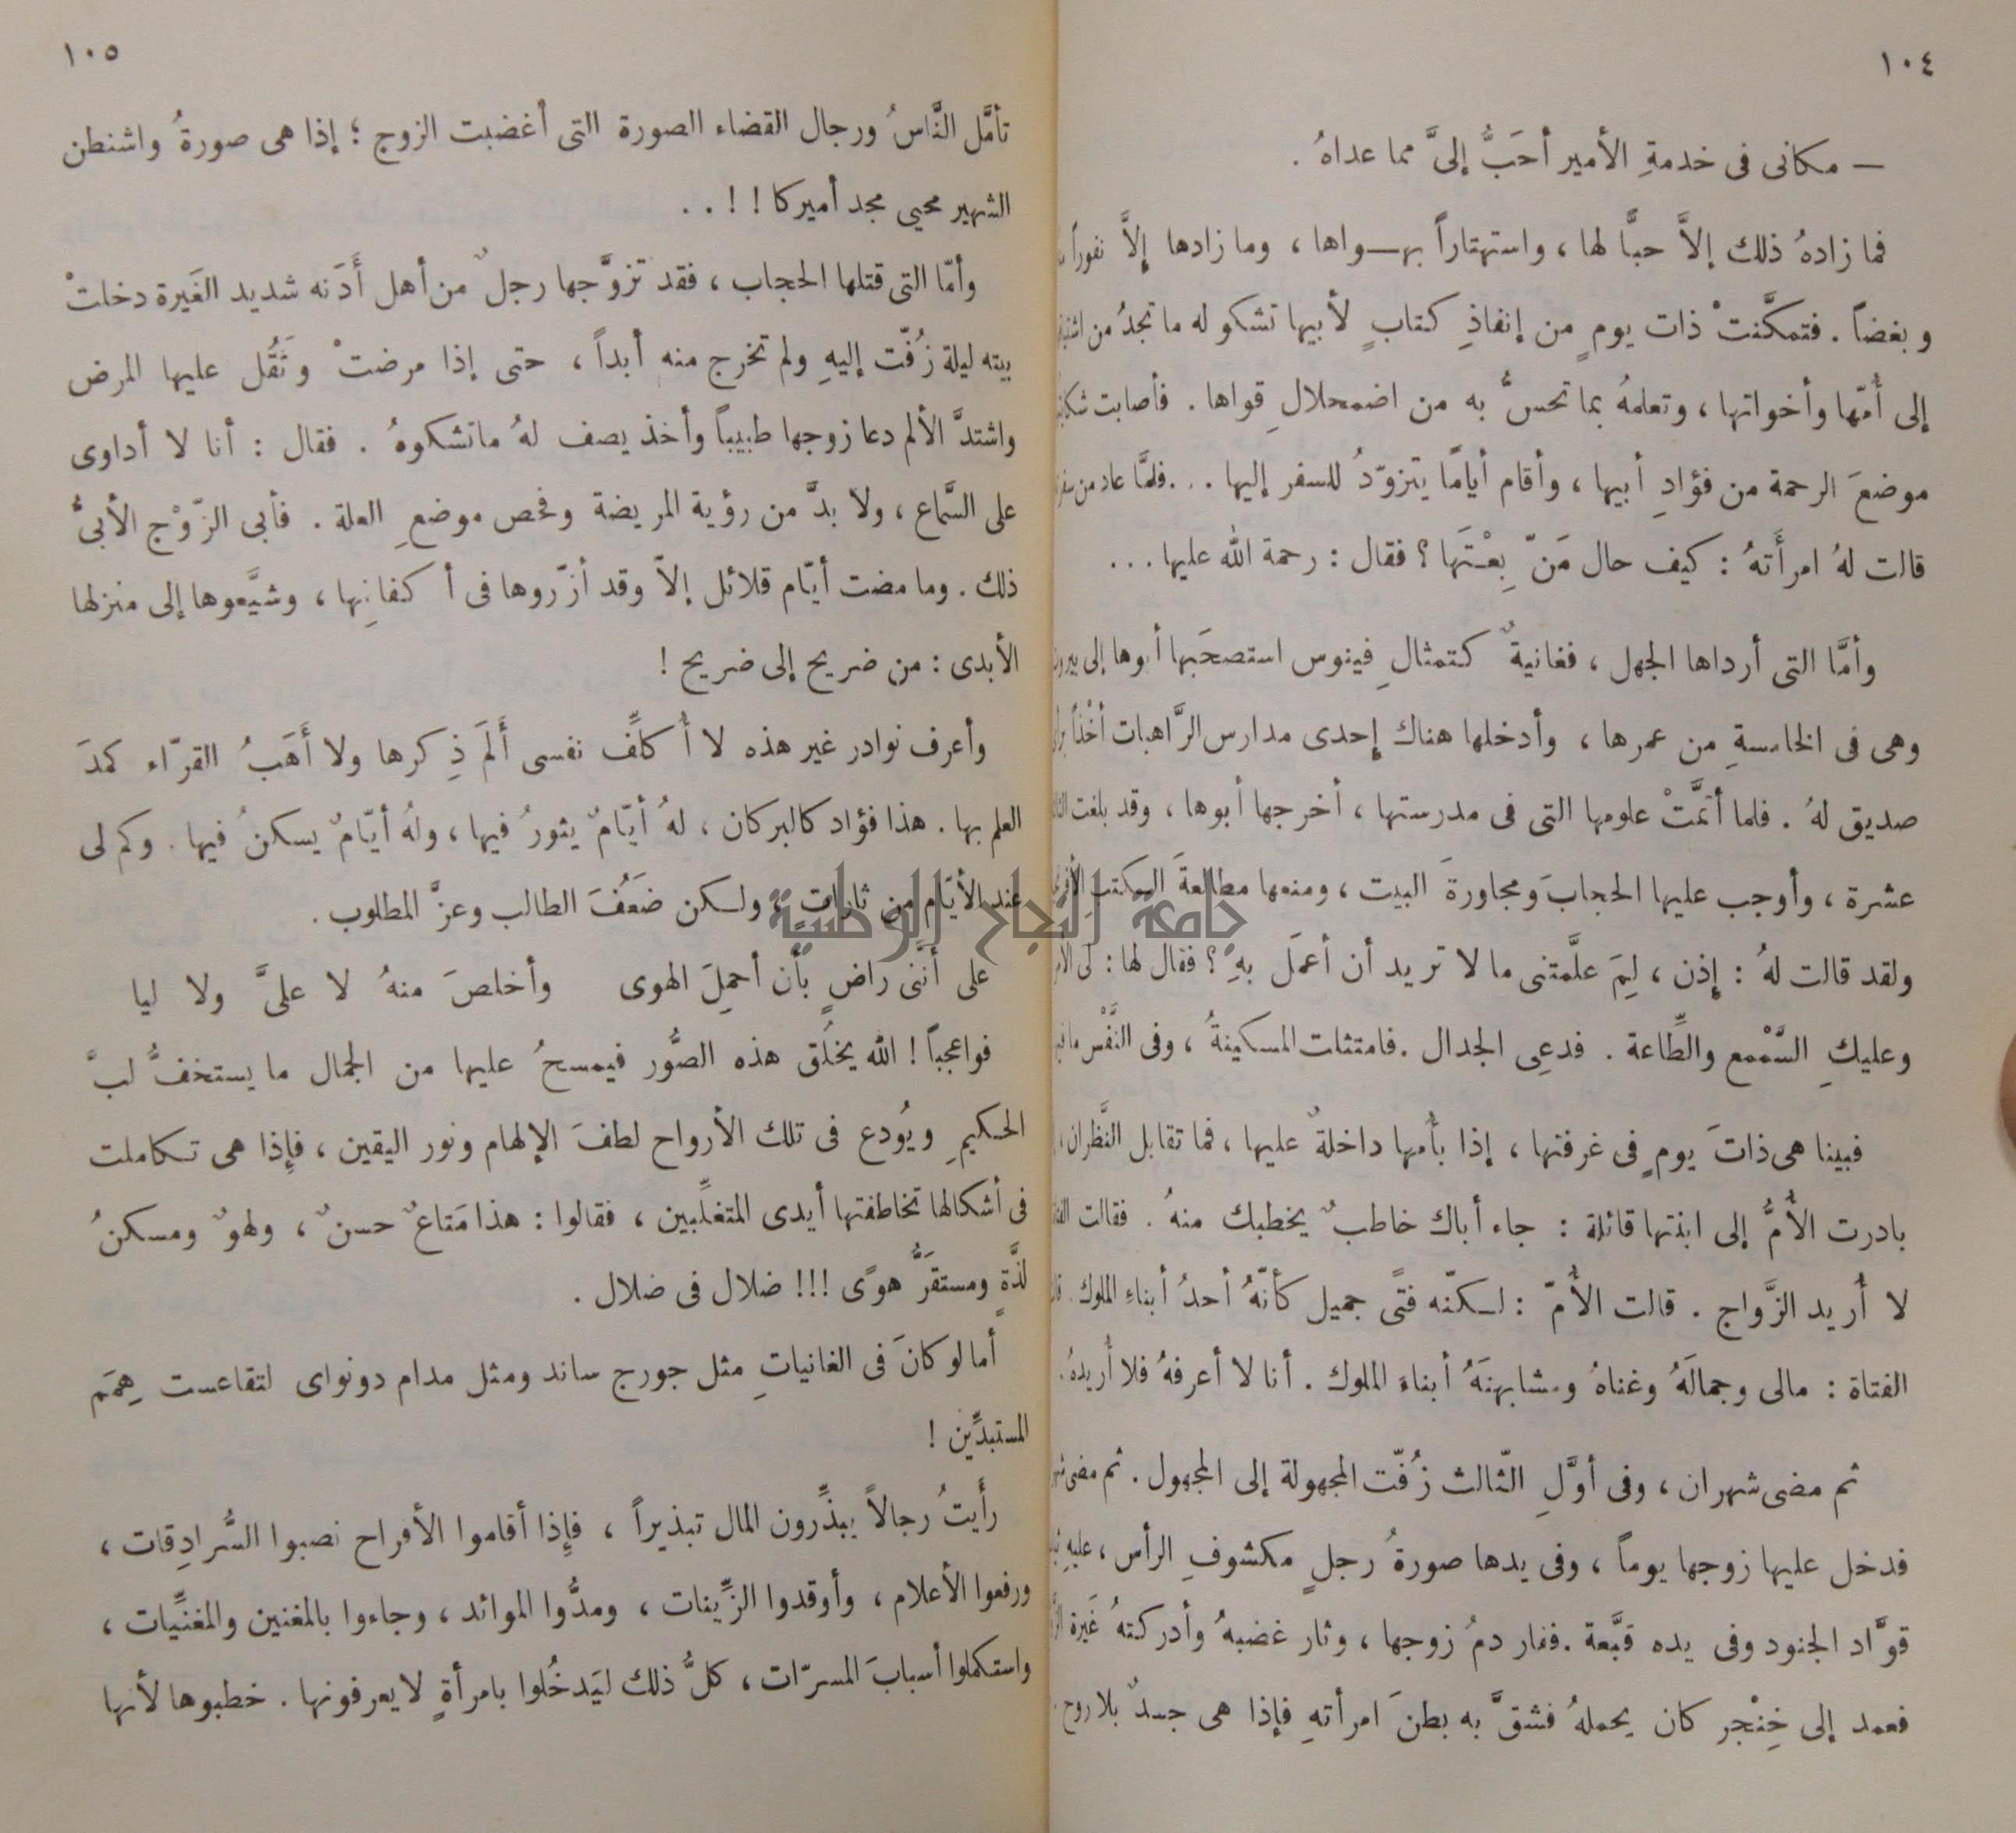 ١٠٤
— مكانى فى خدمةِ الأمير أحَبُّ إلىَّ مما عداهُ .
فما زادهُ ذلك إلاَّ حبًّا لها ، واستهتاراً بهـواها ، وما زادها إلاَّ نفوراً
وبغضاً . فتمكَّنتْ ذات يومٍ من إنفاذِ كتابٍ لأبيها تشكو له ما تجدُ من
إلى أُمّها وأخواتها ، وتعلمهُ بما تحسُّ به من اضمحلالِ قواها . فأصابت
موضعَ الرحمة من فؤادِ أبيها ، وأقام أيامًا يتزوّدُ للسفر إليها . . . فلمَّا عاد من
قالت لهُ امرأَتهُ : كيف حال مَنّ بِعْتَها ؟ فقال : رحمة الله عليها . . .
وأمَّا التى أرداها الجهل ، فغانيةٌ كتمثالِ فينوس استصحَبها أبوها إلى
وهى فى الخامسةِ من عمرها ، وأدخلها هناك إحدى مدارس الرَّاهبات أخْذاً
صديق لهُ . فلما أتمَّتْ علومها التى فى مدرستها ، أخرجها أبوها ، وقد بلغت
عشرة ، وأوجب عليها الحجابَ ومجاورةَ البيت ، ومنعها مطالعةَ الـكتبِ
ولقد قالت لهُ : إذن ، لِمَ علَّمتنى ما لا تريد أن أعمَل بهِ ؟ فقال لها : لى
وعليكِ السَّمْمع والطِّاعة . فدعِى الجدال . فامتثلت المسكينةُ ، وفى النَّفْس
فبينا هى ذاتَ يومٍ فى غرفتها ، إذا بأمها داخلةٌ عليها ، فما تقابل النَّظران
بادرت الأُمُّ إلى ابنتها قائلة : جاء أباك خاطبٌ يخطبك منهُ . فقالت
لا أُريد الزَّواج . قالت الأُمّ : لـكنّه فتًى جميل كأنّهُ أحدُ أبناءِ الملوك .
الفتاة : مالى وجمالَهُ وغناهُ ومشابهتَهُ أبناءَ الملوك . أنا لا أعرفهُ فلا أُريدهُ .
ثم مضى شهران ، وفى أوَّلِ الثّالث زُفّت المجهولة إلى المجهول . ثم مضى
فدخل عليها زوجها يوماً ، وفى يدها صورةُ رجلٍ مكشوفِ الرأس ، عليهِ
قوَّاد الجنود وفى يده قبَّعة . ففار دمُ زوجها ، وثار غضبهُ وأدركتهُ غَيرة
فعمد إلى خِنْجر كان يحملهُ فشقَّ به بطنَ امرأتهِ فإذا هى جسدٌ بلا روح .
١٠٥
تأمَّل النَّاسُ ورجال القضاء الصورة التى أغضبت الزوج ؛ إذا هى صورةُ واشنطن
الشهير محيى مجد أميركا ! ! . .
وأمّا التى قتلها الحجاب ، فقد تزوَّجها رجلٌ من أهل أَدَنه شديد الغَيرة دخلتْ
بيته ليلة زُفّت إليهِ ولم تخرج منه أبداً ، حتى إذا مرضتْ وثَقُل عليها المرض
واشتدَّ الألم دعا زوجها طبيباً وأخذ يصف لهُ ماتشكوهُ . فقال : أنا لا أداوى
على السَّماع ، ولا بدَّ من رؤية المريضة وفحص موضعِ العلة . فأبى الزّوْج الأبىُّ
ذلك . وما مضت أيّام قلائل إلاّ وقد أزّروها فى أكفانِها ، وشيَّعوها إلى منزلها
الأبدى : من ضريح إلى ضريح !
وأعرف نوادر غير هذه لا أُكلِّف نفسى أَلَمَ ذِكرها ولا أَهَبُ القرّاء كمدَ
العلم بها . هذا فؤاد كالبركان ، لهُ أيّامٌ يثورُ فيها ، ولهُ أيّامٌ يسكنُ فيها . وكم لى
عند الأيّام من ثاراتٍ ، ولـكن ضَعُفَ الطالب وعزَّ المطلوب .
على أنَّنى راضٍ بأن أحملِ الهوى وأخلصَ منهُ لا علىَّ ولا ليا
فواعجباً ! الله يخلُق هذه الصُّور فيمسحُ عليها من الجمال ما يستخفُّ لبَّ
الحـكيمِ ويُودع فى تلك الأرواح لطفَ الإلهام ونور اليقين ، فإذا هى تـكاملت
فى أشكالها تخاطفتها أيدى المتغلِّبين ، فقالوا : هذا مَتاعٌ حسنٌ ، ولهوٌ ومسكنُ
لذَّةٍ ومستقَرُّ هوًى !!! ضلال فى ضلال .
أما لو كانَ فى الغانياتِ مثل جورج ساند ومثل مدام دونواى لتقاعست هِمَم
المستبدِّين !
رأَيتُ رجالاً يبذِّرون المال تبذيراً ، فإِذا أقاموا الأفراح نصبوا السُّرادِقات ،
ورفعوا الأعلام ، وأوقدوا الزِّينات ، ومدُّوا الموائد ، وجاءوا بالمغنين والمغنِّيات ،
واستكملوا أسبابَ المسرّات ، كلُّ ذلك ليَدخُلوا بامرأةٍ لا يعرفونها . خطبوها لأنها
جامعة النجاح الوطنية